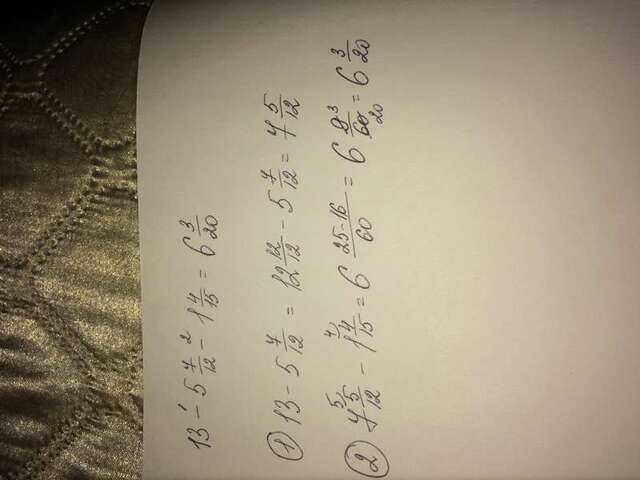 13 - ¹ 5 7/12 - ² 1 4/15 = 6 3/20
① 13 - 5 7/12 = 12 12/12 - 5 7/12 = 7 5/12
② 7 5/12 ⁵⁾ - 1 4/15 ⁴⁾ = 6 25-16/60 = 6 9/60 ³/₂₀ = 6 3/20